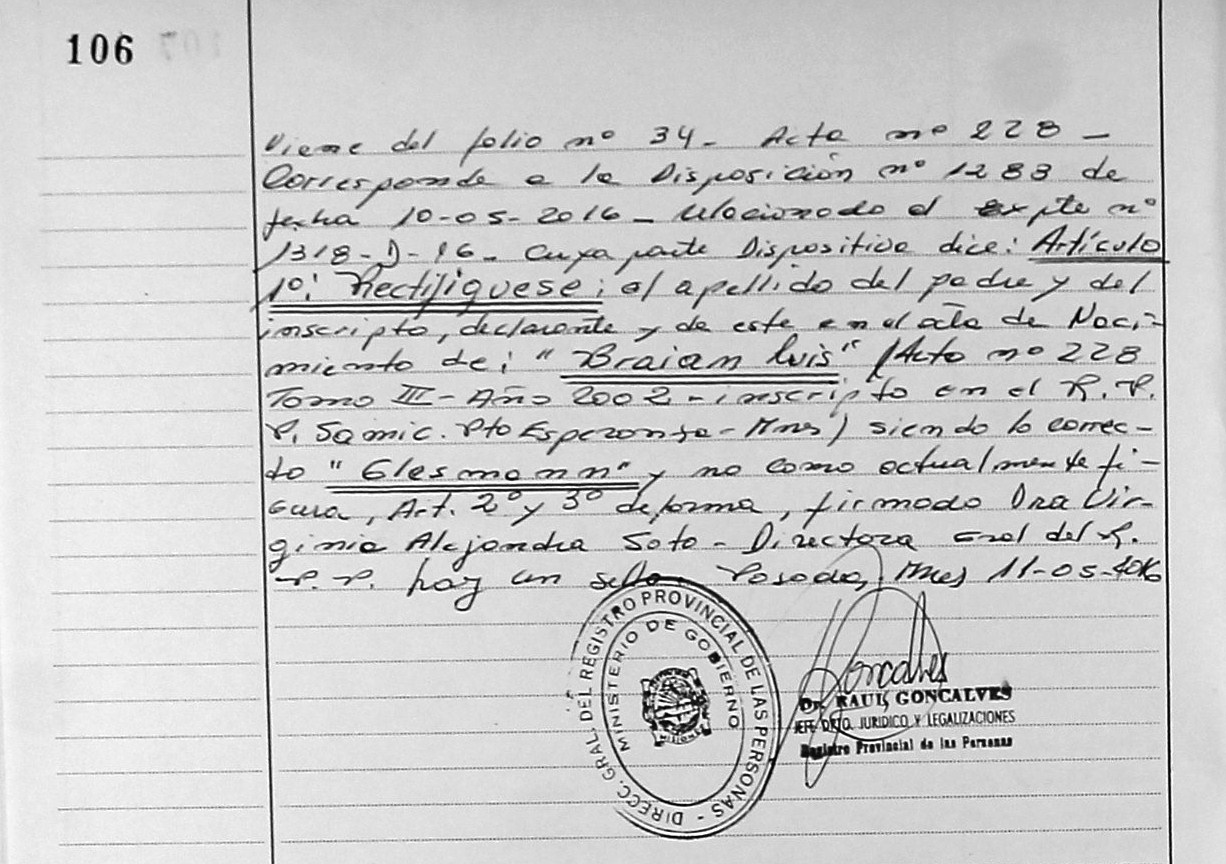 106
Viene del folio nº 34. Acta nº 228 -
Corresponde a la Disposición nº 1283 de
fecha 10-05-2016 - relacionado al expte nº
1318-D-16. Cuya parte Dispositiva dice: Artículo
1º: Rectifíquese; el apellido del padre y del
inscripto, declarante y de este en el acta de Naci-
miento de: "Braian Luis" (Acta nº 228
Tomo III - Año 2002 - inscripto en el R. P.
P. Samic. Pto Esperanza - Mnes) siendo lo correc-
to "Glesmann" y no como actualmente fi-
gura, Art. 2º y 3º de forma, firmado Dra Vir-
ginia Alejandra Soto - Directora Gral del R.
P. P. hay un sello. Posadas, Mnes 11-05-2016
DIRECC. GRAL. DEL REGISTRO PROVINCIAL DE LAS PERSONAS -
MINISTERIO DE GOBIERNO
MISIONES
Goncalves
Dr. RAUL GONCALVES
JEFE DPTO. JURIDICO Y LEGALIZACIONES
Registro Provincial de las Personas